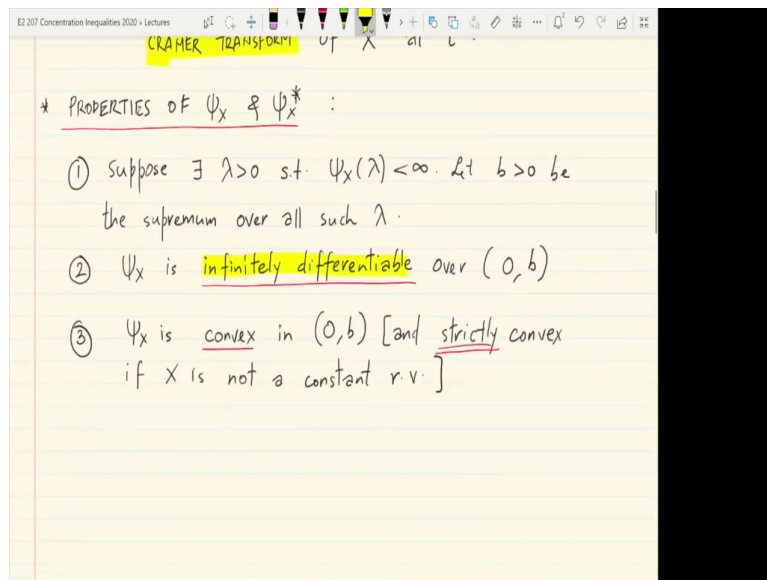 E2 207 Concentration Inequalities 2020 » Lectures
CRAMER TRANSFORM of X at t.
* PROPERTIES OF Ψ_X & Ψ_X^* :
① Suppose ∃ λ>0 s.t. Ψ_X(λ) < ∞. Let b>0 be
the supremum over all such λ.
② Ψ_X is infinitely differentiable over (0,b)
③ Ψ_X is convex in (0,b) [and strictly convex
if X is not a constant r.v.]